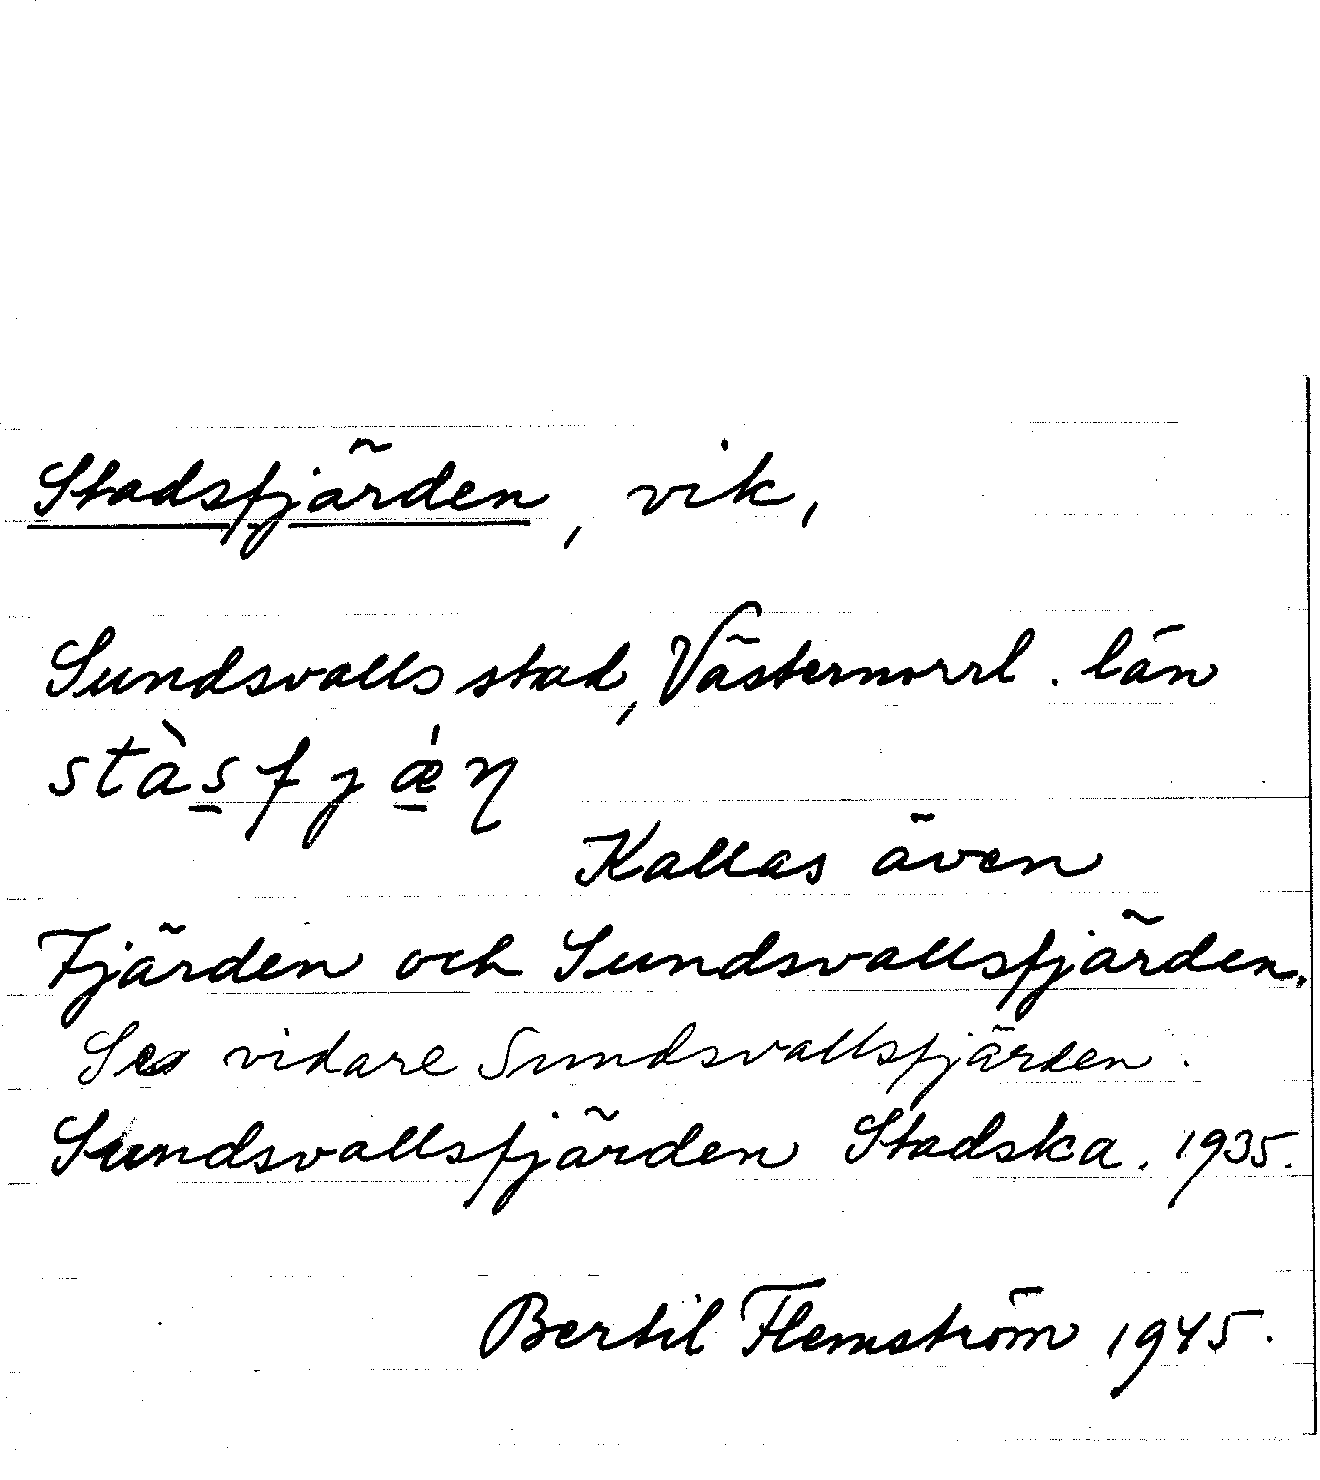 Stadsfjärden, vik,
Sundsvalls stad, Västernorrl. län
stàs̲fjǽ̲η
Kallas även
Fjärden och Sundsvallsfjärden.
Se vidare Sundsvallsfjärden.
Sundsvallsfjärden Stadska. 1935.
Bertil Flemström 1945.